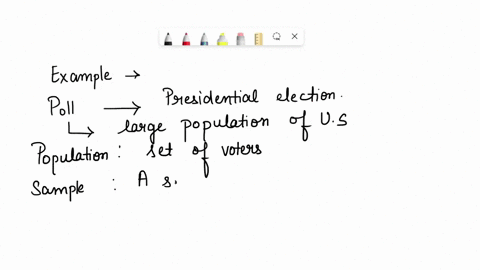 Example →
Poll → Presidential election.
↳ large population of U.S
Population : set of voters
Sample : A s.